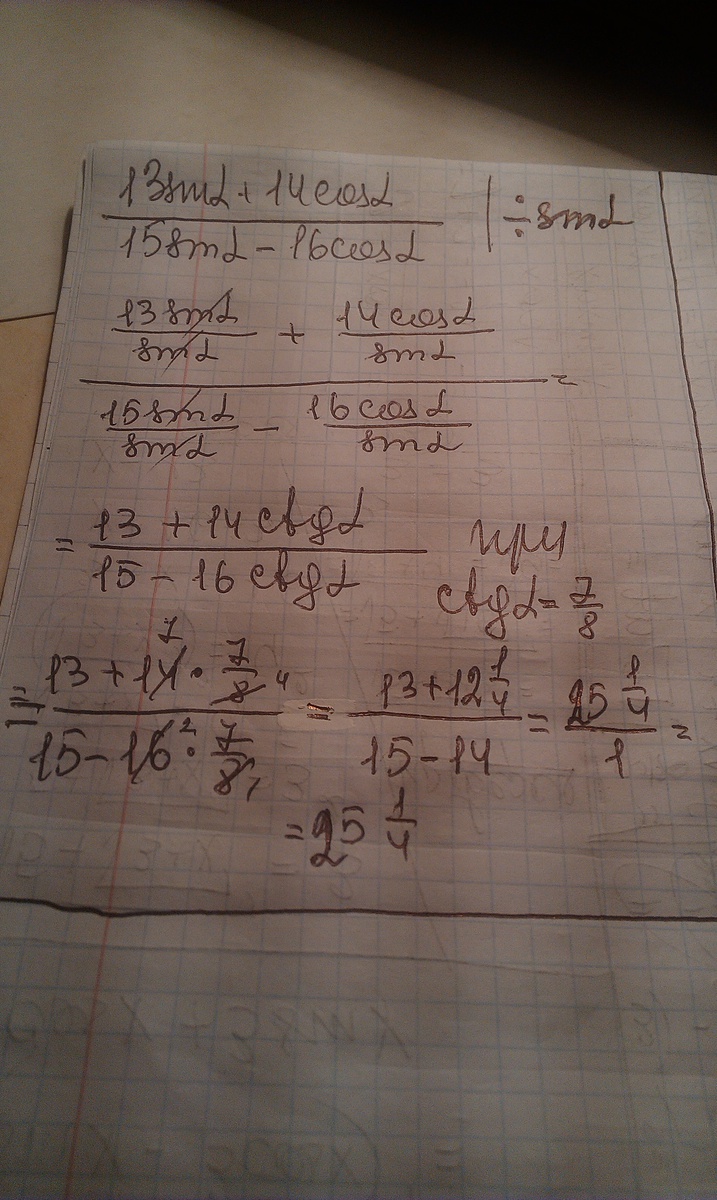 13sinα + 14cosα
15sinα − 16cosα
| ÷ sinα
13sinα/sinα + 14cosα/sinα
15sinα/sinα − 16cosα/sinα =
= 13 + 14ctgα
15 − 16ctgα
при
ctgα = 7/8
= 13 + 14 7 · 7/8 4
15 − 16 2 · 7/8 1
= 13 + 12 1/4
15 − 14
= 25 1/4
1 =
= 25 1/4